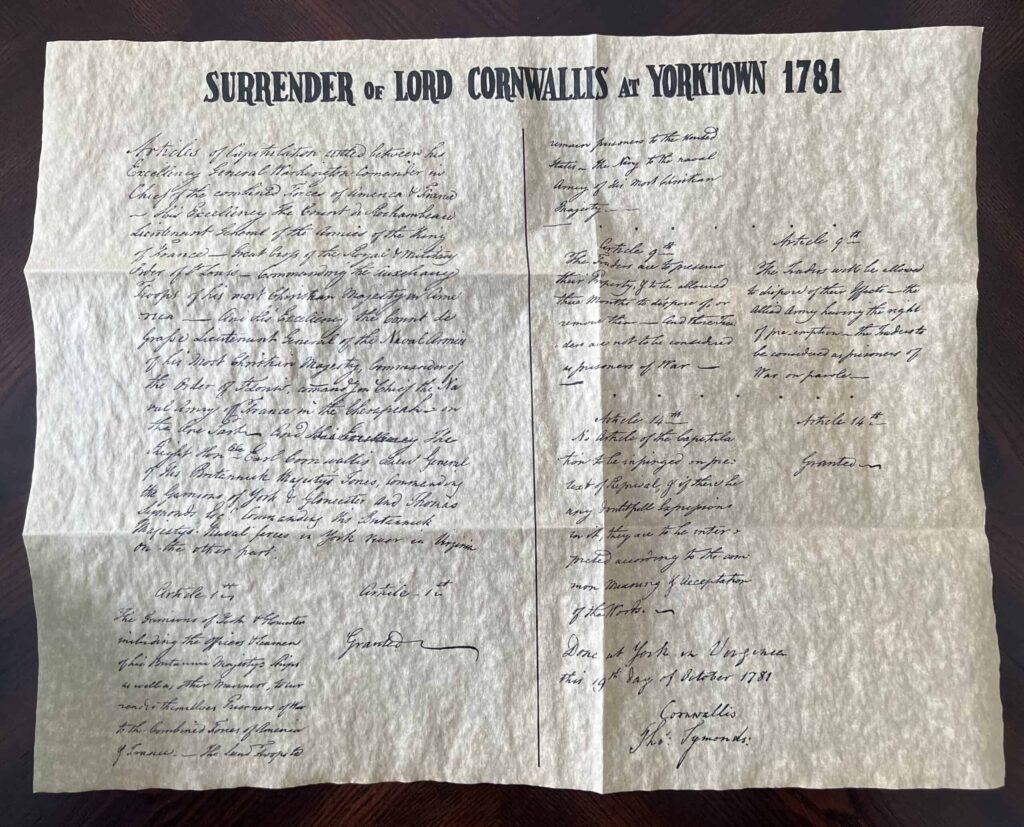 SURRENDER OF LORD CORNWALLIS AT YORKTOWN 1781
Articles of Capitulation settled between his
Excellency General Washington Comander in
Chief of the combined Forces of America & France
— His Excellency The Count de Rochambeau
Lieutenant General of the Armies of the King
of France — Great Cross of the Royal & Military
Order of St Louis — Commanding the auxiliary
Troops of his most Christian Majesty in Ame
rica — And His Excellency the Count de
Grasse Lieutenant General of the Naval Armies
of his Most Christian Majesty, Commander of
the Order of St Louis, comandg in Chief the Na
val Army of France in the Chesapeak — on
the one Part — And His Excellency The
Right Honble Earl Cornwallis Lieut General
of His Britannick Majestys Forces, commanding
the Garrisons of York & Gloucester and Thomas
Symonds Esqr Commanding His Britannick
Majestys Naval forces in York River in Virginia
on the other part.
Article 1st
The Garrisons of York & Gloucester
including the Officers & Seamen
of his Britannic Majesty's Ships
as well as other Mariners, to sur
render themselves Prisoners of War
to the Combined Forces of America
& France. — The Land Troops to
Article 1st
Granted
remain prisoners to the United
States — the Navy to the naval
Army of his Most Christian
Majesty —
Article 9th
The Traders are to preserve
their Property, & to be allowed
three Months to dispose of, or
remove them — And those Tra
ders are not to be considered
as prisoners of War —
Article 9th
The Traders will be allowed
to dispose of their Effects — the
Allied Army having the right
of pre-emption — the Traders to
be considered as prisoners of
War on parole —
Article 14th
No Article of the Capitula
tion to be infringed on pre:
text of Reprisal, & if there be
any doubtfull Expressions
in it, they are to be inter:
preted according to the com
mon Meaning & Acceptation
of the Words. —
Article 14th
Granted —
Done at York in Virginia
this 19th day of October 1781
Cornwallis
Thos. Symonds.